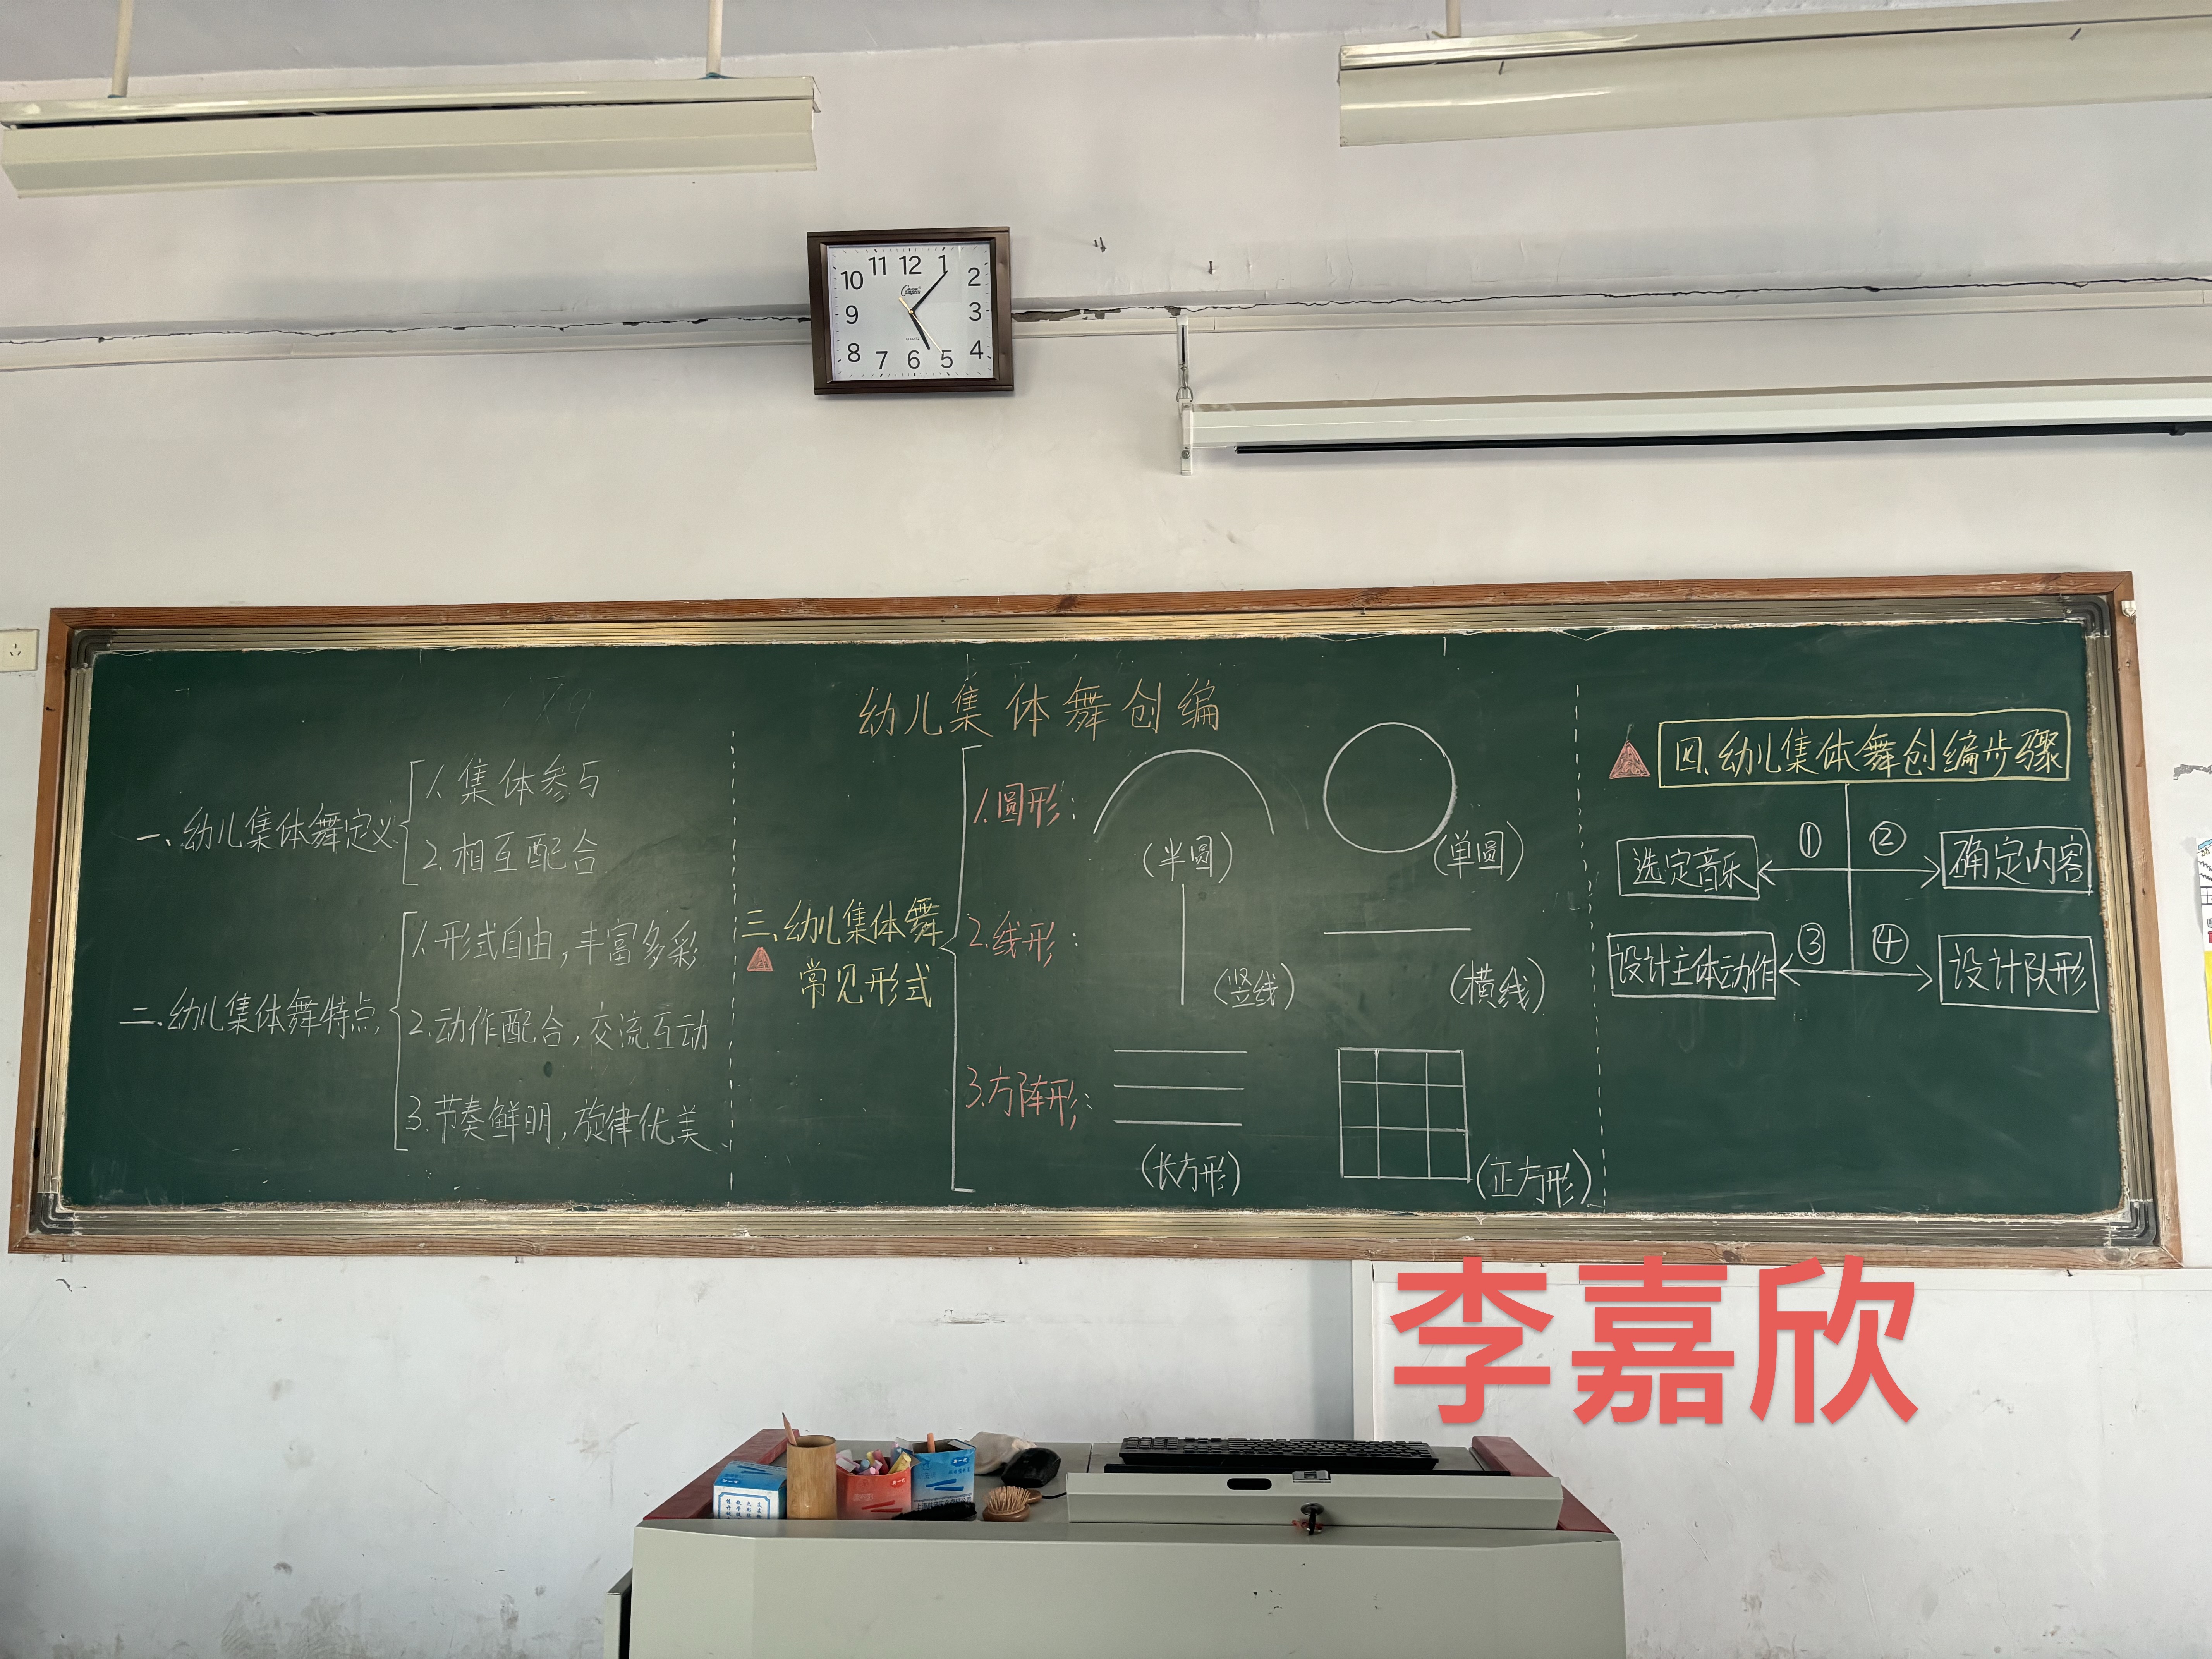 11 12 1
10 2
9 3
8 4
7 6 5
QUARTZ
幼儿集体舞创编
一、幼儿集体舞定义
1.集体参与
2.相互配合
二.幼儿集体舞特点
1.形式自由,丰富多彩
2.动作配合,交流互动
3.节奏鲜明,旋律优美、
三、幼儿集体舞
常见形式
1.圆形:
(半圆)
(单圆)
2.线形:
(竖线)
(横线)
3.方阵形:
(长方形)
(正方形)
四、幼儿集体舞创编步骤
① ②
选定音乐
确定内容
③ ④
设计主体动作
设计队形
李嘉欣